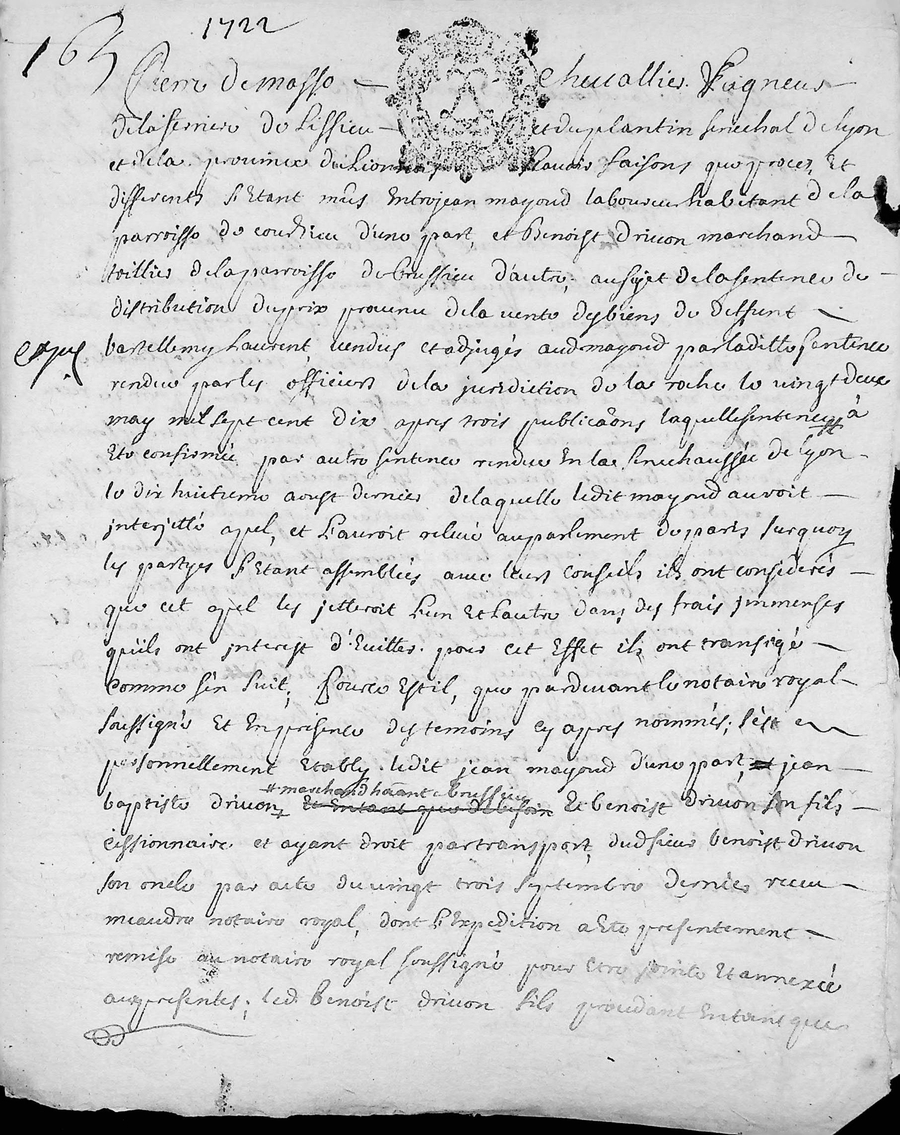 163 1722
Pierre De masso — Chevallier Seigneur —
dela ferriere de Lissieu — et du plantin senechal de Lyon
et dela province du Lionnois scavoir faisons que proces Et
differents s'Etant mus Entre jean mayoud laboureur habitant de la
parroisse de courzieu d'une part, et Benoist drivon marchand —
toillier dela parroisse de brussieu d'autre, au sujet dela sentence de —
distribution du prix provenu dela vente des biens de deffunt —
expé
bartellemy Laurent vendus et adjugés aud mayoud par laditte sentence
rendue par les officiers dela juridiction de la roche le vingt deux
may mil sept cent dix apres trois publicaons laquelle sentence à
Eté confirmée par autre sentence rendue En la senechaussée de Lyon —
le dix huitieme aoust dernier delaquelle ledit mayoud auroit —
jnterjetté apel, et L'auroit relevé au parlement de paris surquoy
les partyes s'Etant assemblées avec leurs conseils ils ont considerés —
que cet apel les jetteroit L'un Et L'autre dans des frais jmmenses
qu'ils ont jnterest d'Eviter. pour cet Effet ils ont transigé —
Comme s'en suit, Pource Est il, que pardevant le notaire royal —
soussigné Et En presence des temoins cy apres nommés, s'est
personnellement Etably ledit jean mayoud d'une part, et jean —
# marchand haant a brussieu
baptiste drivon # Et Entant que de besoin Et benoist drivon son fils —
cessionnaire et ayant droit par transport dud sieur benoist drivon
son oncle par acte du vingt trois septembre dernier receu —
meaudre notaire royal, dont L'Expedition a Eté presentement —
remise au notaire royal soussigné pour Etre jointe Et annexée
aux presentes, led. benoist drivon fils procedant Entant que